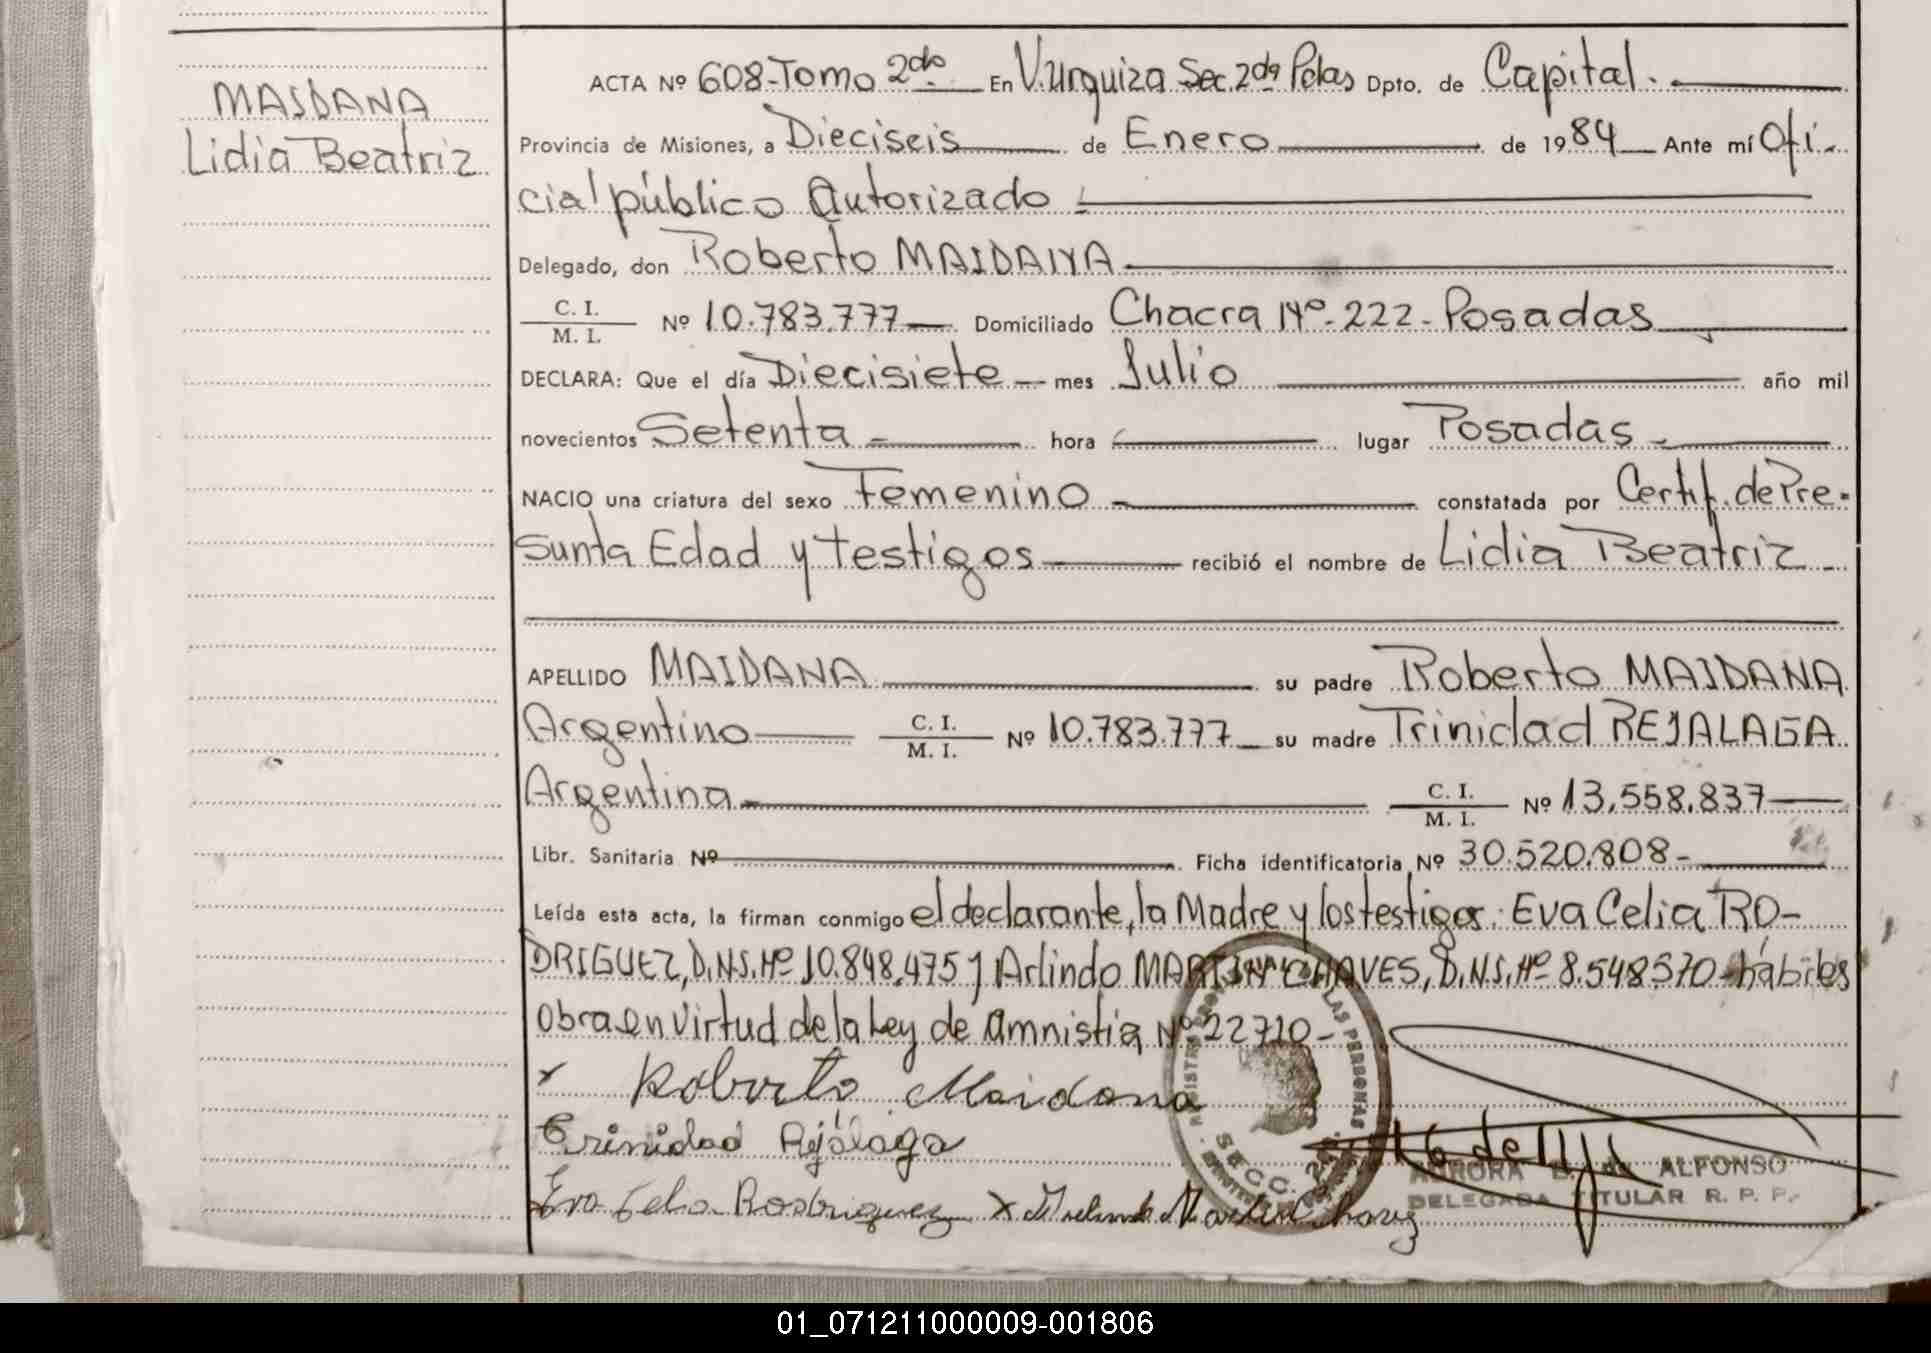 MAIDANA
Lidia Beatriz
ACTA Nº 608-Tomo 2do En V. Urquiza Sec. 2da Pdas Dpto. de Capital.
Provincia de Misiones, a Dieciseis de Enero de 1984 Ante mí Ofi-
cial público Autorizado
Delegado, don Roberto MAIDANA
C. I.
M. I. Nº 10.783.777 Domiciliado Chacra Nº 222 - Posadas
DECLARA: Que el día Diecisiete mes Julio año mil
novecientos Setenta hora lugar Posadas
NACIO una criatura del sexo Femenino constatada por Certif. de Pre-
sunta Edad y testigos recibió el nombre de Lidia Beatriz
APELLIDO MAIDANA su padre Roberto MAIDANA
Argentino C. I. M. I. Nº 10.783.777 su madre Trinidad REJALAGA
Argentina C. I. M. I. Nº 13.558.837
Libr. Sanitaria Nº Ficha identificatoria Nº 30.520.808-
Leída esta acta, la firman conmigo el declarante, la Madre y los testigos: Eva Celia RO-
DRIGUEZ, D.N.I. Nº 10.848.475 y Arlindo MARTIN CHAVES, D.N.I. Nº 8.548570-hábiles
obra en virtud de la Ley de Amnistia Nº 22710-
x Roberto Maidana
Trinidad Rejálaga
Eva Celia Rodriguez x Arlindo Martin Chavez
LAS PERSONAS
SECC. 2ª
AURORA ALFONSO
DELEGADA TITULAR R. P. P.
01_071211000009-001806